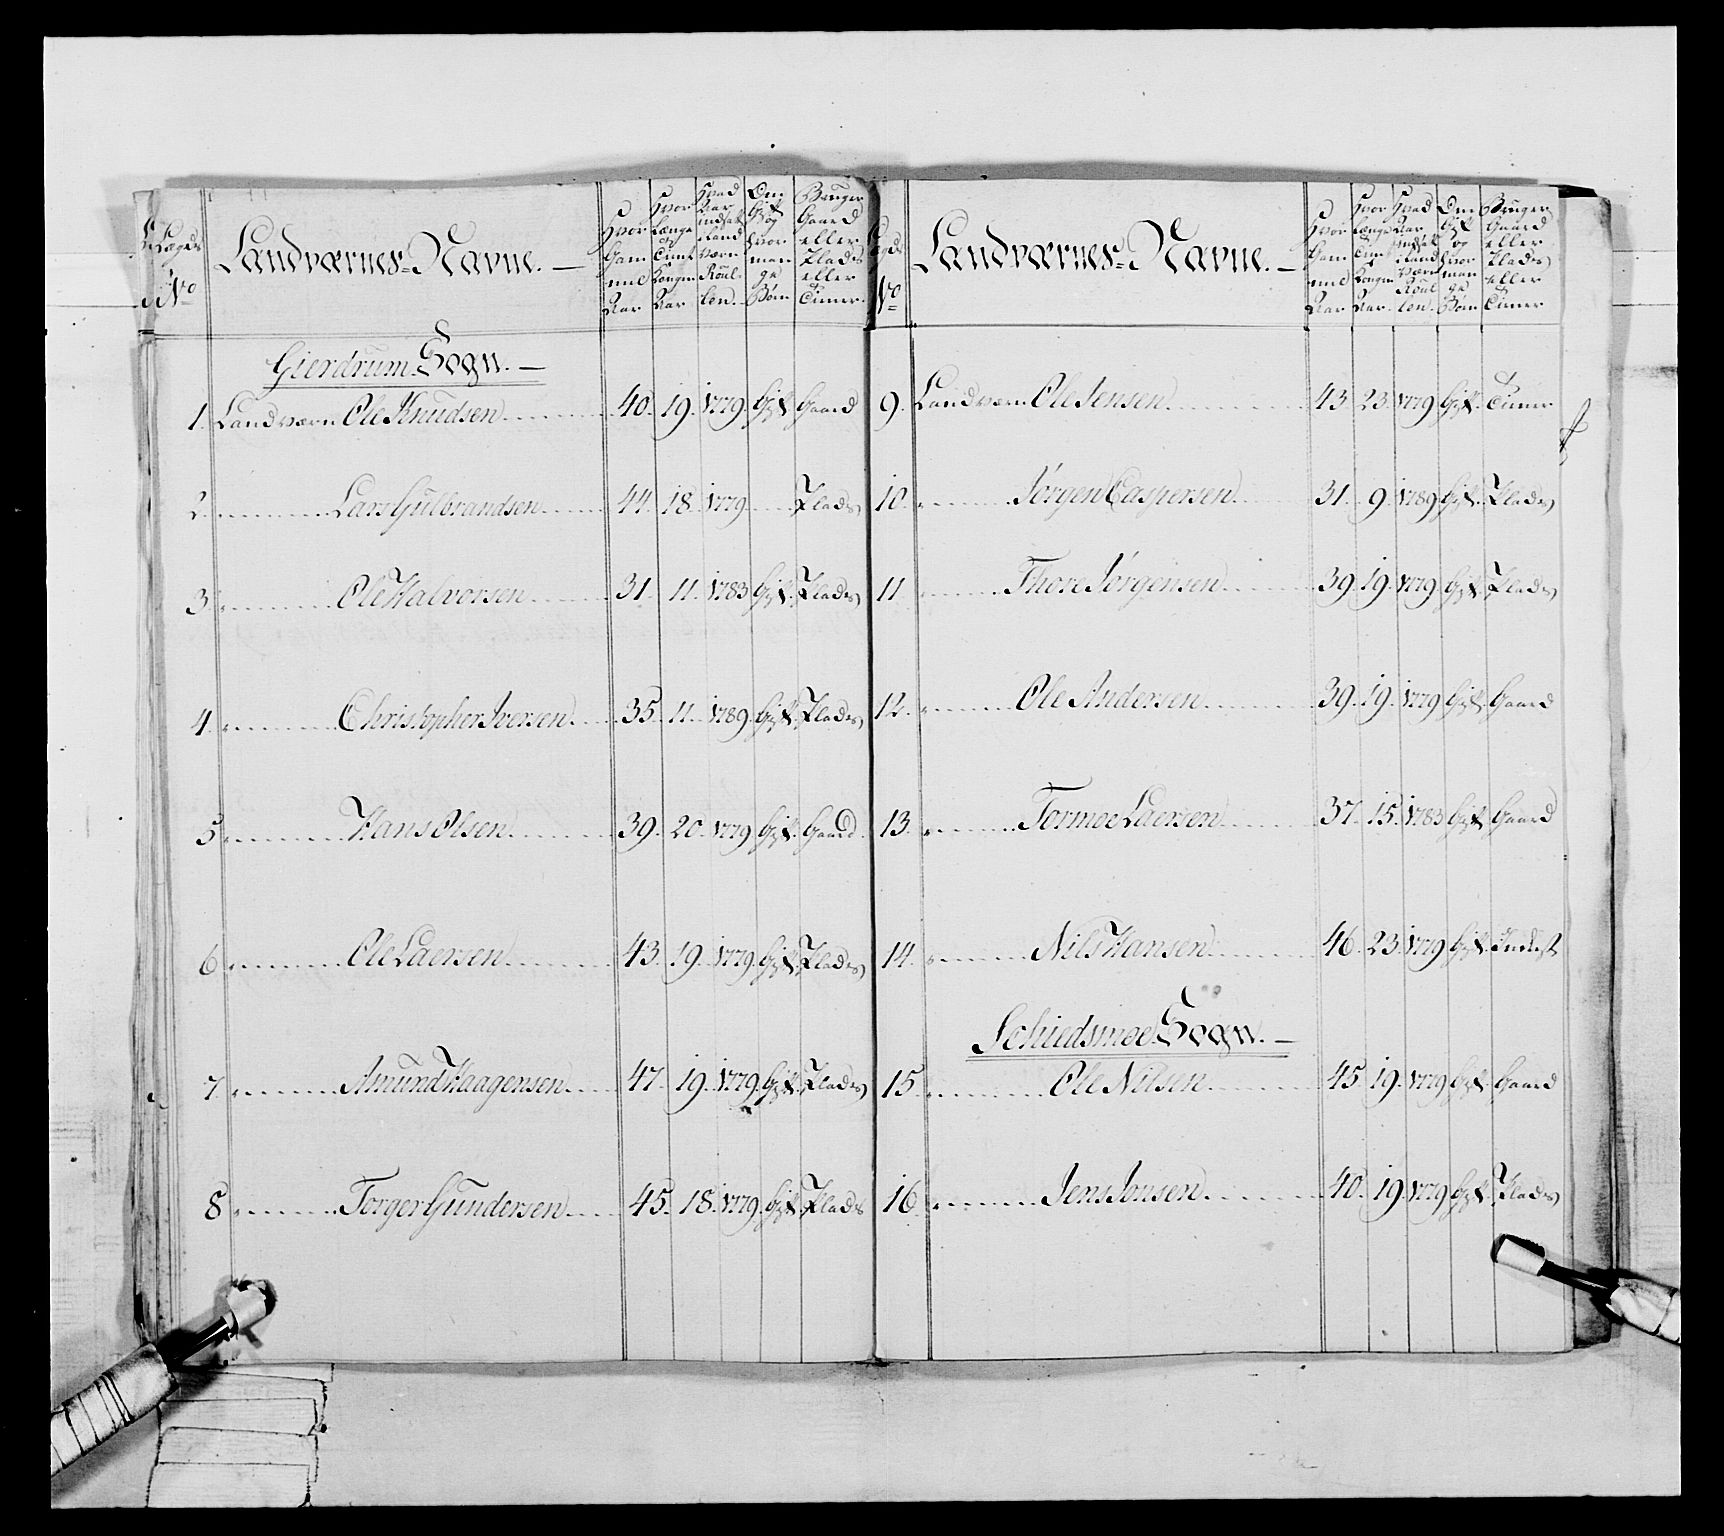 Lægds No
Landværnes-Navne.
Hvor Gammel Aar
Hvor Længe Tient Kongen Aar
Hvad Aar indsat i Land Værn Roullen.
Om Gift og hvor mange Børn
Bruger Gaard eller Plads eller Timer.
Gierdrum Sogn.
1. Landværn Ole Knudsen 40. 19. 1779. Gift. Gaard
2. Lars Gulbrandsen 44. 18. 1779. Plads
3. Ole Halvorsen 31. 11. 1783 Gift. Plads
4. Christopher Iversen 35. 11. 1789 Gift. Plads
5. Hans Olsen 39. 20. 1779 Gift. Gaard.
6. Ole Laersen 43. 19. 1779. Gift. Plads
7. Amund Haagensen 47. 19. 1779. Gift. Plads
8. Torger Gundersen 45. 18. 1779. Gift. Plads
Lægds No
Landværnes-Navne.
Hvor Gammel Aar
Hvor Længe Tient Kongen Aar.
Hvad Aar indsat i Land Værn Roullen.
Om Gift og hvor mange Børn
Bruger Gaard eller Plads eller Timer
9. Landværn Ole Jensen 43. 23. 1779 Gift. Timer
10. Jørgen Caspersen 31. 9. 1789 Gift. Plads
11. Thore Jørgensen 39. 19. 1779 Gift. Plads
12. Ole Andersen 39. 19. 1779 Gift. Gaard
13. Tormoe Laersen 37. 15. 1783 Gift. Gaard
14. Nils Hansen 46. 23. 1779 Gift. Inderst
Schiedsmoe Sogn.
15. Ole Nilsen 45. 19. 1779 Gift. Gaard
16. Jens Jonsen 40. 19. 1779 Gift. Plads